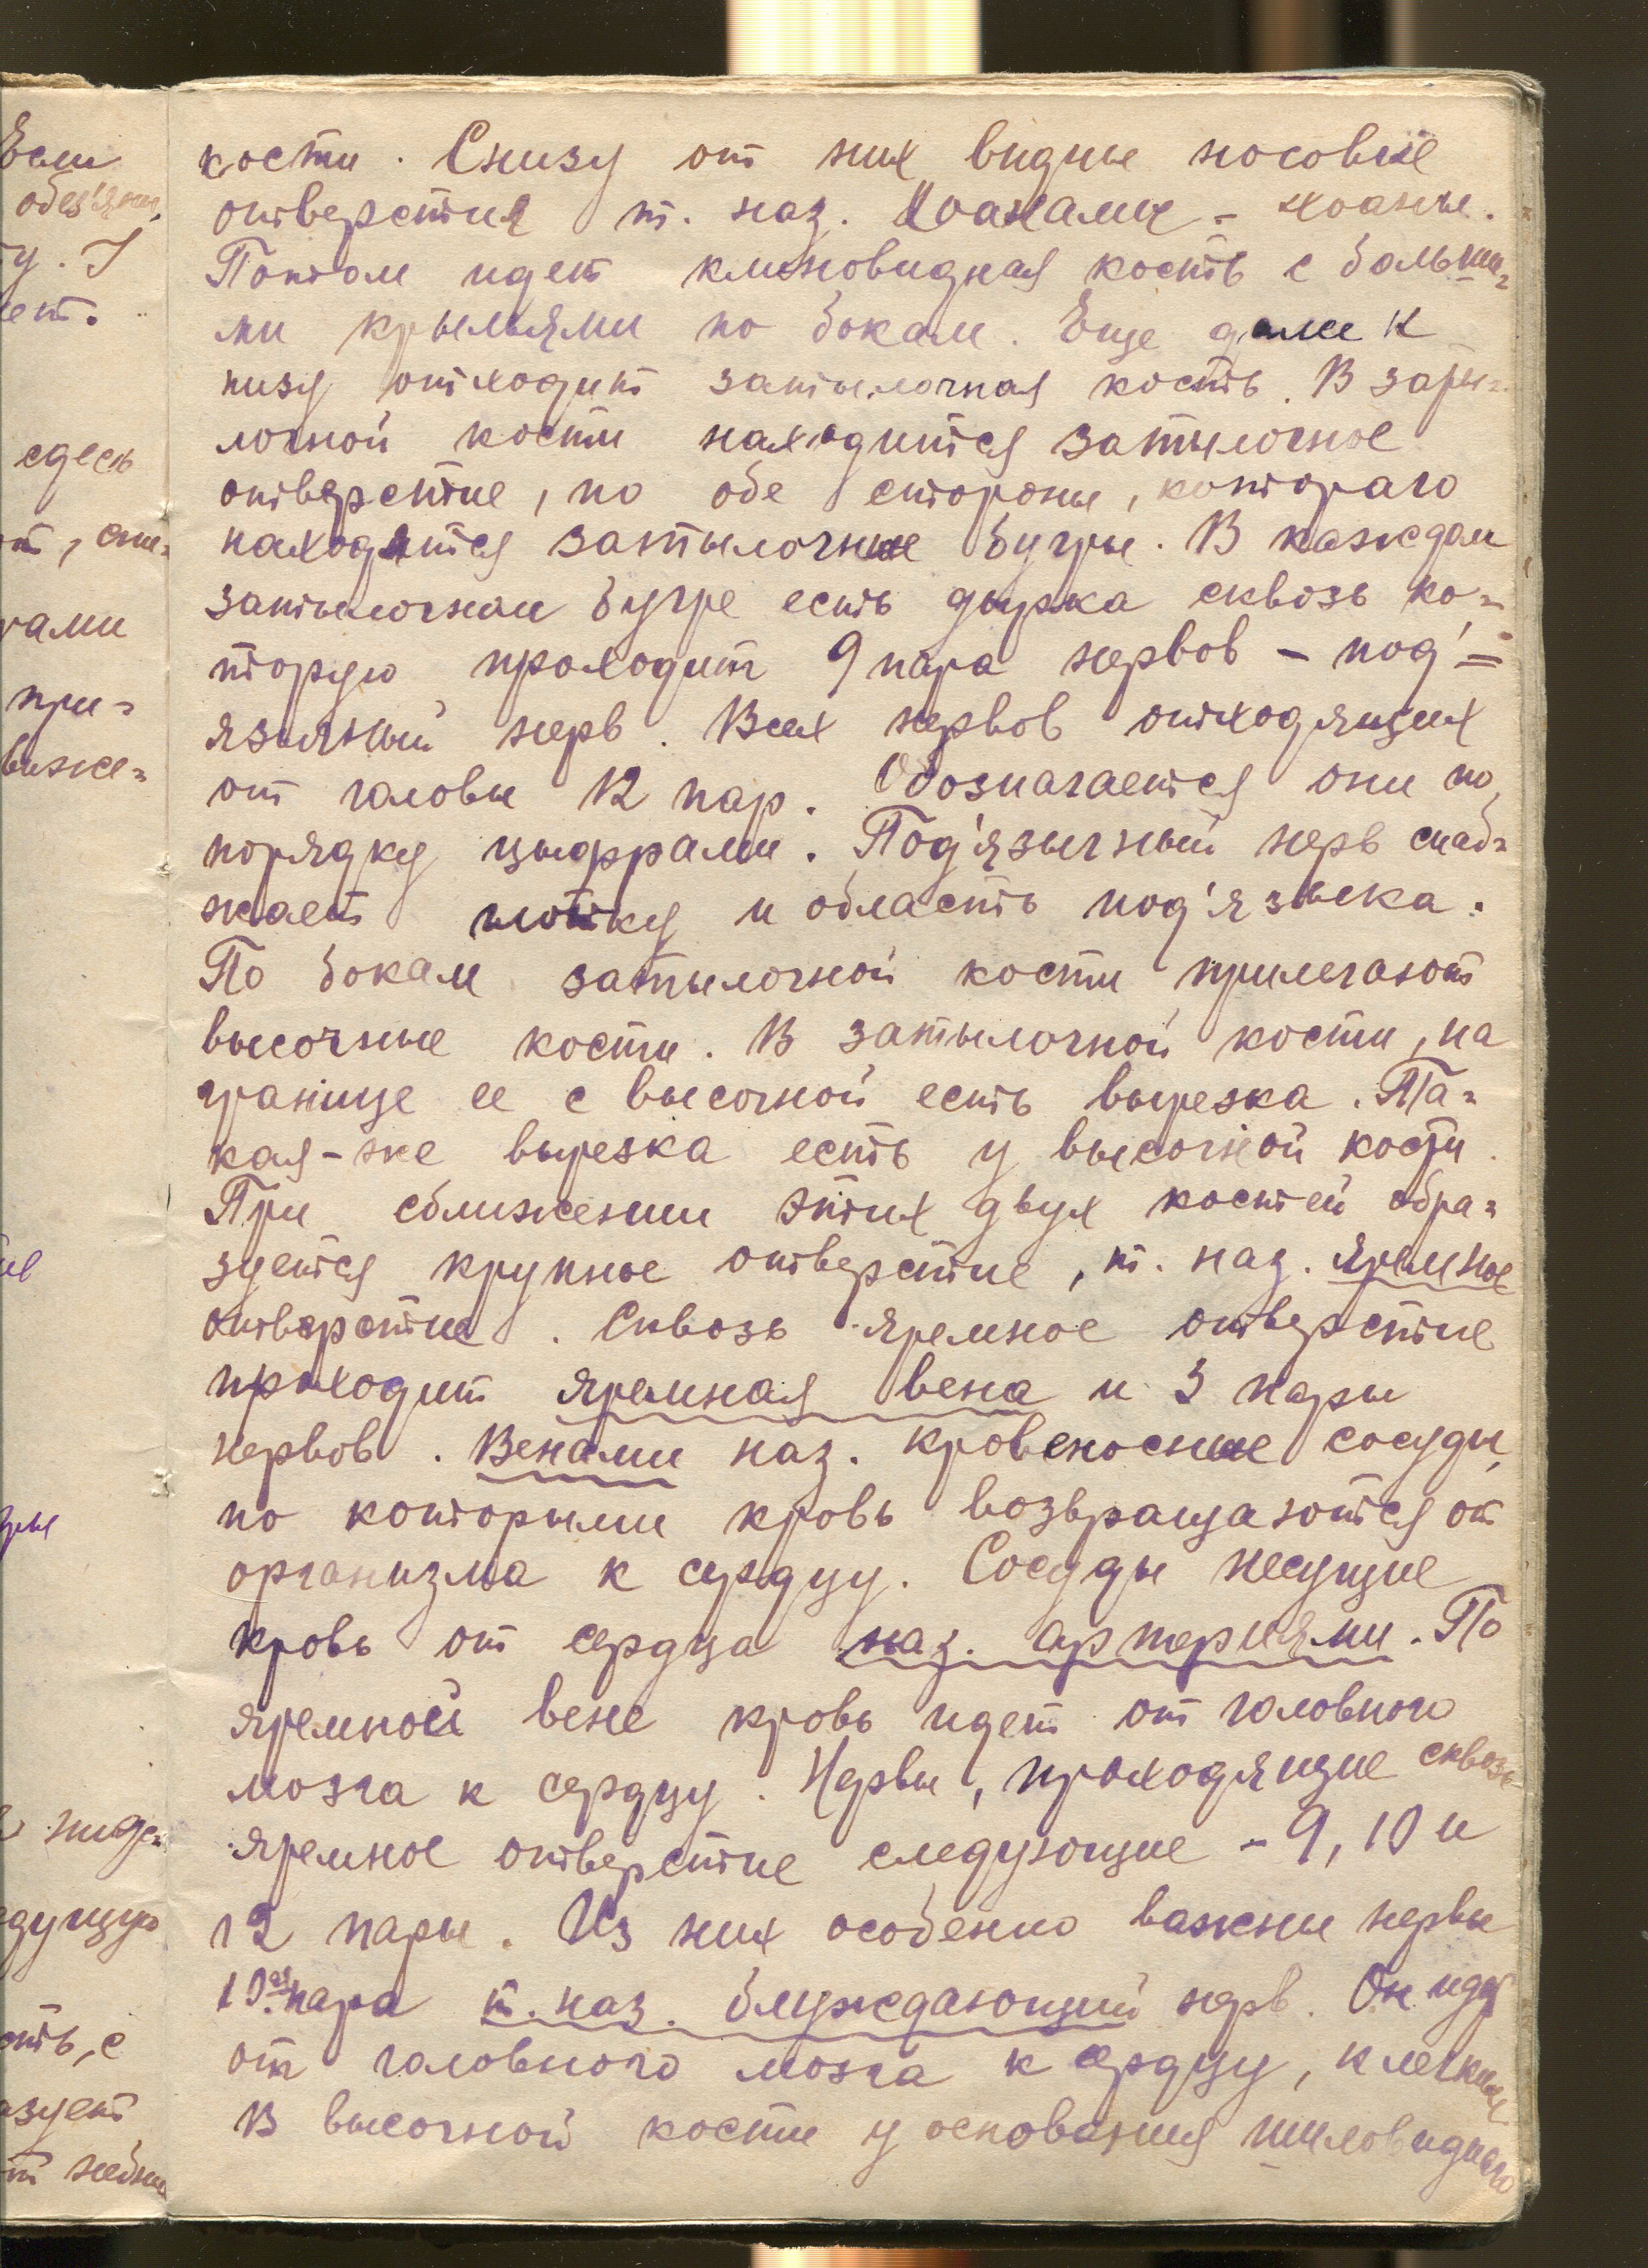 кости. Снизу от них видны носовые
отверстия т. наз. Хоанами - хоаны.
Потом идет клиновидная кость с больши=
ми крыльями по бокам. Еще далее к
низу отходит затылочная кость. В заты=
лочной кости находится затылочное
отверстие, по обе стороны, котораго
находятся затылочные бугры. В каждом
затылочном бугре есть дырка сквозь ко=
торую проходит 9 пара нервов - под'=
язычный нерв. Всех нервов отходящих
от головы 12 пар. Обозначается они по
порядку цыфрами. Под'язычный нерв снаб=
жает глотку и область под'языка.
По бокам затылочной кости прилегают
височные кости. В затылочной кости, на
границе ее с височной есть вырезка. Та=
кая-же вырезка есть у височной кости.
При сближении этих двух костей обра=
зуется крупное отверстие, т. наз. яремное
отверстие. Сквозь яремное отверстие
проходит яремная вена и 3 пары
нервов. Венами наз. кровеносные сосуды,
по которыми кровь возвращаются от
организма к сердцу. Сосуды несущие
кровь от сердца наз. артериями. По
яремной вене кровь идет от головного
мозга к сердцу. Нервы, проходящие сквозь
яремное отверстие следующие - 9, 10 и
12 пары. Из них особенно важны нервы
10ая пара т. наз. блуждающий нерв. Он идет
от головного мозга к сердцу, к легким
В височной кости у основания шиловидного
Если
обез'яны,
у. I
ет.
сдесь
т, сни=
гами
при=
виже=
дующую
ость, с
азует